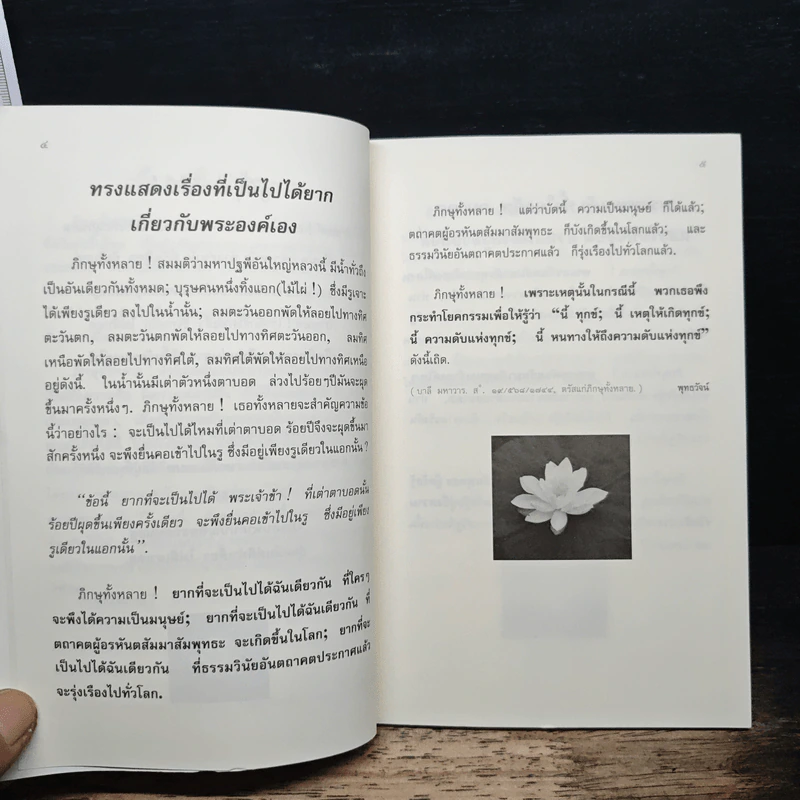 ๔
ทรงแสดงเรื่องที่เป็นไปได้ยาก
เกี่ยวกับพระองค์เอง
ภิกษุทั้งหลาย ! สมมติว่ามหาปฐพีอันใหญ่หลวงนี้ มีน้ำทั่วถึง
เป็นอันเดียวกันทั้งหมด; บุรุษคนหนึ่งทิ้งแอก(ไม้ไผ่ !) ซึ่งมีรูเจาะ
ได้เพียงรูเดียว ลงไปในน้ำนั้น; ลมตะวันออกพัดให้ลอยไปทางทิศ
ตะวันตก, ลมตะวันตกพัดให้ลอยไปทางทิศตะวันออก, ลมทิศ
เหนือพัดให้ลอยไปทางทิศใต้, ลมทิศใต้พัดให้ลอยไปทางทิศเหนือ
อยู่ดังนี้. ในน้ำนั้นมีเต่าตัวหนึ่งตาบอด ล่วงไปร้อยๆปีมันจะผุด
ขึ้นมาครั้งหนึ่งๆ. ภิกษุทั้งหลาย ! เธอทั้งหลายจะสำคัญความข้อ
นี้ว่าอย่างไร : จะเป็นไปได้ไหมที่เต่าตาบอด ร้อยปีจึงจะผุดขึ้นมา
สักครั้งหนึ่ง จะพึงยื่นคอเข้าไปในรู ซึ่งมีอยู่เพียงรูเดียวในแอกนั้น ?
“ข้อนี้ ยากที่จะเป็นไปได้ พระเจ้าข้า ! ที่เต่าตาบอดนั้น
ร้อยปีผุดขึ้นเพียงครั้งเดียว จะพึงยื่นคอเข้าไปในรู ซึ่งมีอยู่เพียง
รูเดียวในแอกนั้น”.
ภิกษุทั้งหลาย ! ยากที่จะเป็นไปได้ฉันเดียวกัน ที่ใครๆ
จะพึงได้ความเป็นมนุษย์; ยากที่จะเป็นไปได้ฉันเดียวกัน ที่
ตถาคตผู้อรหันตสัมมาสัมพุทธะ จะเกิดขึ้นในโลก; ยากที่จะ
เป็นไปได้ฉันเดียวกัน ที่ธรรมวินัยอันตถาคตประกาศแล้ว
จะรุ่งเรืองไปทั่วโลก.
๕
ภิกษุทั้งหลาย ! แต่ว่าบัดนี้ ความเป็นมนุษย์ ก็ได้แล้ว;
ตถาคตผู้อรหันตสัมมาสัมพุทธะ ก็บังเกิดขึ้นในโลกแล้ว; และ
ธรรมวินัยอันตถาคตประกาศแล้ว ก็รุ่งเรืองไปทั่วโลกแล้ว.
ภิกษุทั้งหลาย ! เพราะเหตุนั้นในกรณีนี้ พวกเธอพึง
กระทำโยคกรรมเพื่อให้รู้ว่า “นี้ ทุกข์; นี้ เหตุให้เกิดทุกข์;
นี้ ความดับแห่งทุกข์; นี้ หนทางให้ถึงความดับแห่งทุกข์”
ดังนี้เถิด.
( บาลี มหาวาร. สํ. ๑๙/๕๖๘/๑๗๔๔, ตรัสแก่ภิกษุทั้งหลาย. ) พุทธวัจน์